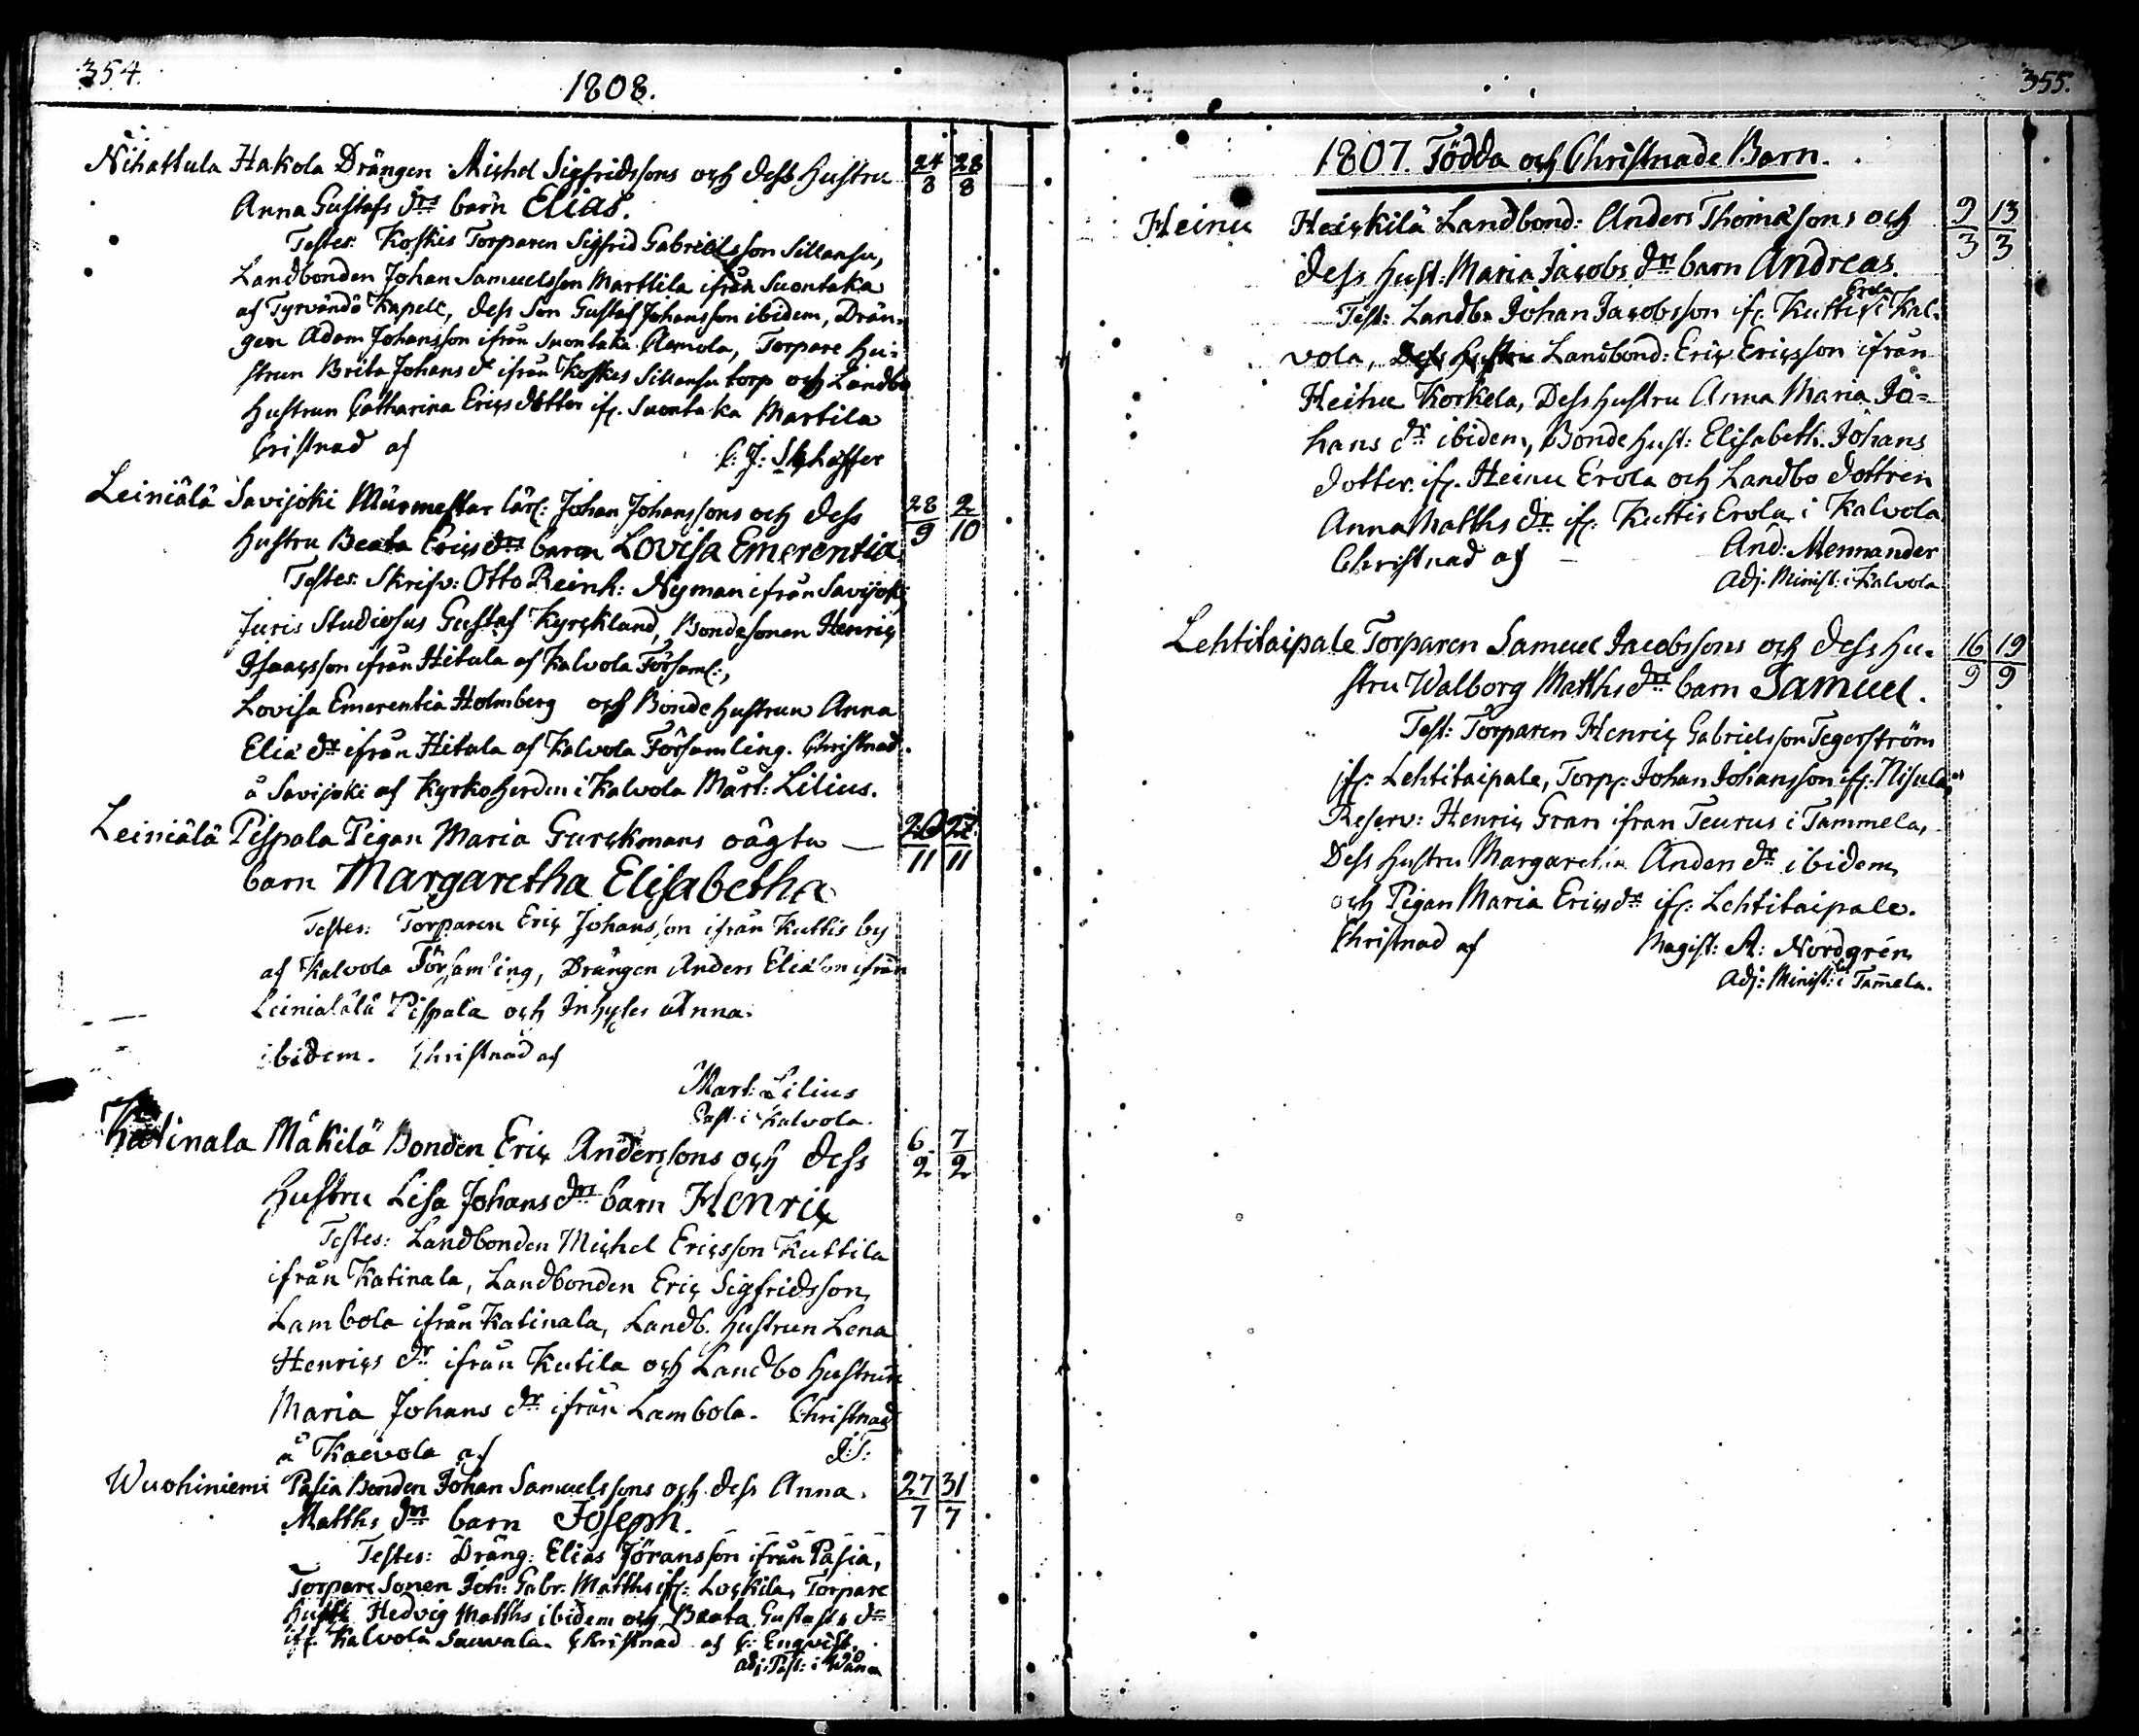 354.
1808.
Nihattula Hakola Drängen Michel Sigfridssons och dess hustru 24/8 28/8
Anna Gustafs drs barn Elias.
Testes: Koskis Torparen Sigfrid Gabrielsson Sillansu,
Landbonden Johan Samuelsson Marttila ifrån Suontaka
af Tyrvändö Kapell, dess Son Gustaf Johansson ibidem, Drän-
gen Adam Johansson ifrån Suontaka Alamola, Torpare hu-
strun Brita Johans d ifrån Koskis Sillansu torp och Landbo
hustrun Catharina Erics dotter ifr. Suontaka Martila
Cristnad af C: J:
Leiniälä Savijoki Mürmestar lärl: Johan Johanssons och dess 28/9 2/10
hustru Beata Erics drs barn Lovisa Emerentia.
Testes: Skrifv: Otto Reinh: Nyman ifrån Savijoki,
Juris Studiosus Gustaf Kyrckland, Bondesonen Henric
Isaacsson ifrån Hitula af Kalvola Församl:,
Lovisa Emerentia Holmberg och Bonde hustrun Anna
Eliæ dr ifrån Hitula af Kalvola Församling. Christnad
å Savijoki af Kyrkoherden i Kalvola Mårt: Lilius.
Leiniälä Pispala Pigan Maria Gurckmans oägta 20/11 27/11
barn Margaretha Elisabetha
Testes: Torparen Eric Johansson ifrån Kuttis by
af Kalvola Församling, Drängen Anders Eliæson ifrån
Leinialälä Pispala och Inhyses Anna
ibidem. Christnad af
Mart: Lilius
Past. i Kalvola.
Katinala Mäkilä Bonden Eric Anderssons och dess 6/2 7/2
hustru Lisa Johans drs barn Henric
Testes: Landbonden Michel Ericsson Kuttila
ifrån Katinala, Landbonden Eric Sigfridsson
Lambola ifrån Katinala, Landb. hustrun Lena
Henrics dr ifrån Kutila och Landbo hustrun
Maria Johans dr ifrån Lambola. Christnad
å Kalvola af J: T:
Wuohiniemi Pasia Bonden Johan Samuelssons och dess Anna 27/7 31/7
Matths drs barn Joseph.
Testes: Dräng: Elias Jöransson ifrån Pasia,
Torpare Sonen Joh: Gabr. Matths ifr: Lockila, Torpare
hustr Hedvig Matths ibidem och Beata Gustafs dr
ifr. Kalvola Sauvala. Christnad af C: Enqvist.
adj: Past: i Wåna
355.
1807. Födda och Christnade Barn.
Heinu Heickilä Landbond: Anders Thomæsons och 9/3 13/3
dess hust: Maria Jacobs drs barn Andreas.
Test: Landb: Johan Jacobsson ifr. Kuttis Erola i Kal-
vola, Landbond: Eric Ericsson ifrån
Heinu Korkela, Dess hustru Anna Maria Jo-
hans dr ibidem, Bonde hust: Elisabeth Johans
dotter ifr. Heinu Erola och Landbo dottren
Anna Matths dr ifr: Kuttis Erola i Kalvola
Christnad af And: Mennander
Adj. Minist: i Kalvola
Lehtitaipale Torparen Samuel Jacobssons och dess hu- 16/9 19/9
stru Walborg Matths drs barn Samuel.
Test: Torparen Henric Gabrielsson Tegerström
ifr: Lehtitaipale, Torp: Johan Johansson ifr: Nisula,
Reserv: Henric Gran ifrån Teurus i Tammela,
Dess hustru Margaretha Anders dr ibidem
och Pigan Maria Erics dr ifr: Lehtitaipale.
Christnad af Magist: A: Nordgrén
Adj: Minist: i Tam̄ela.